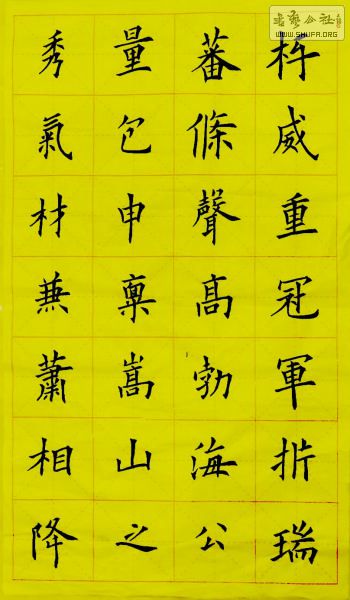 威重冠軍析瑞
蕃條聲高勃海公
量包申稟嵩山之
秀氣材兼蕭相降
WWW.SHUFA.ORG